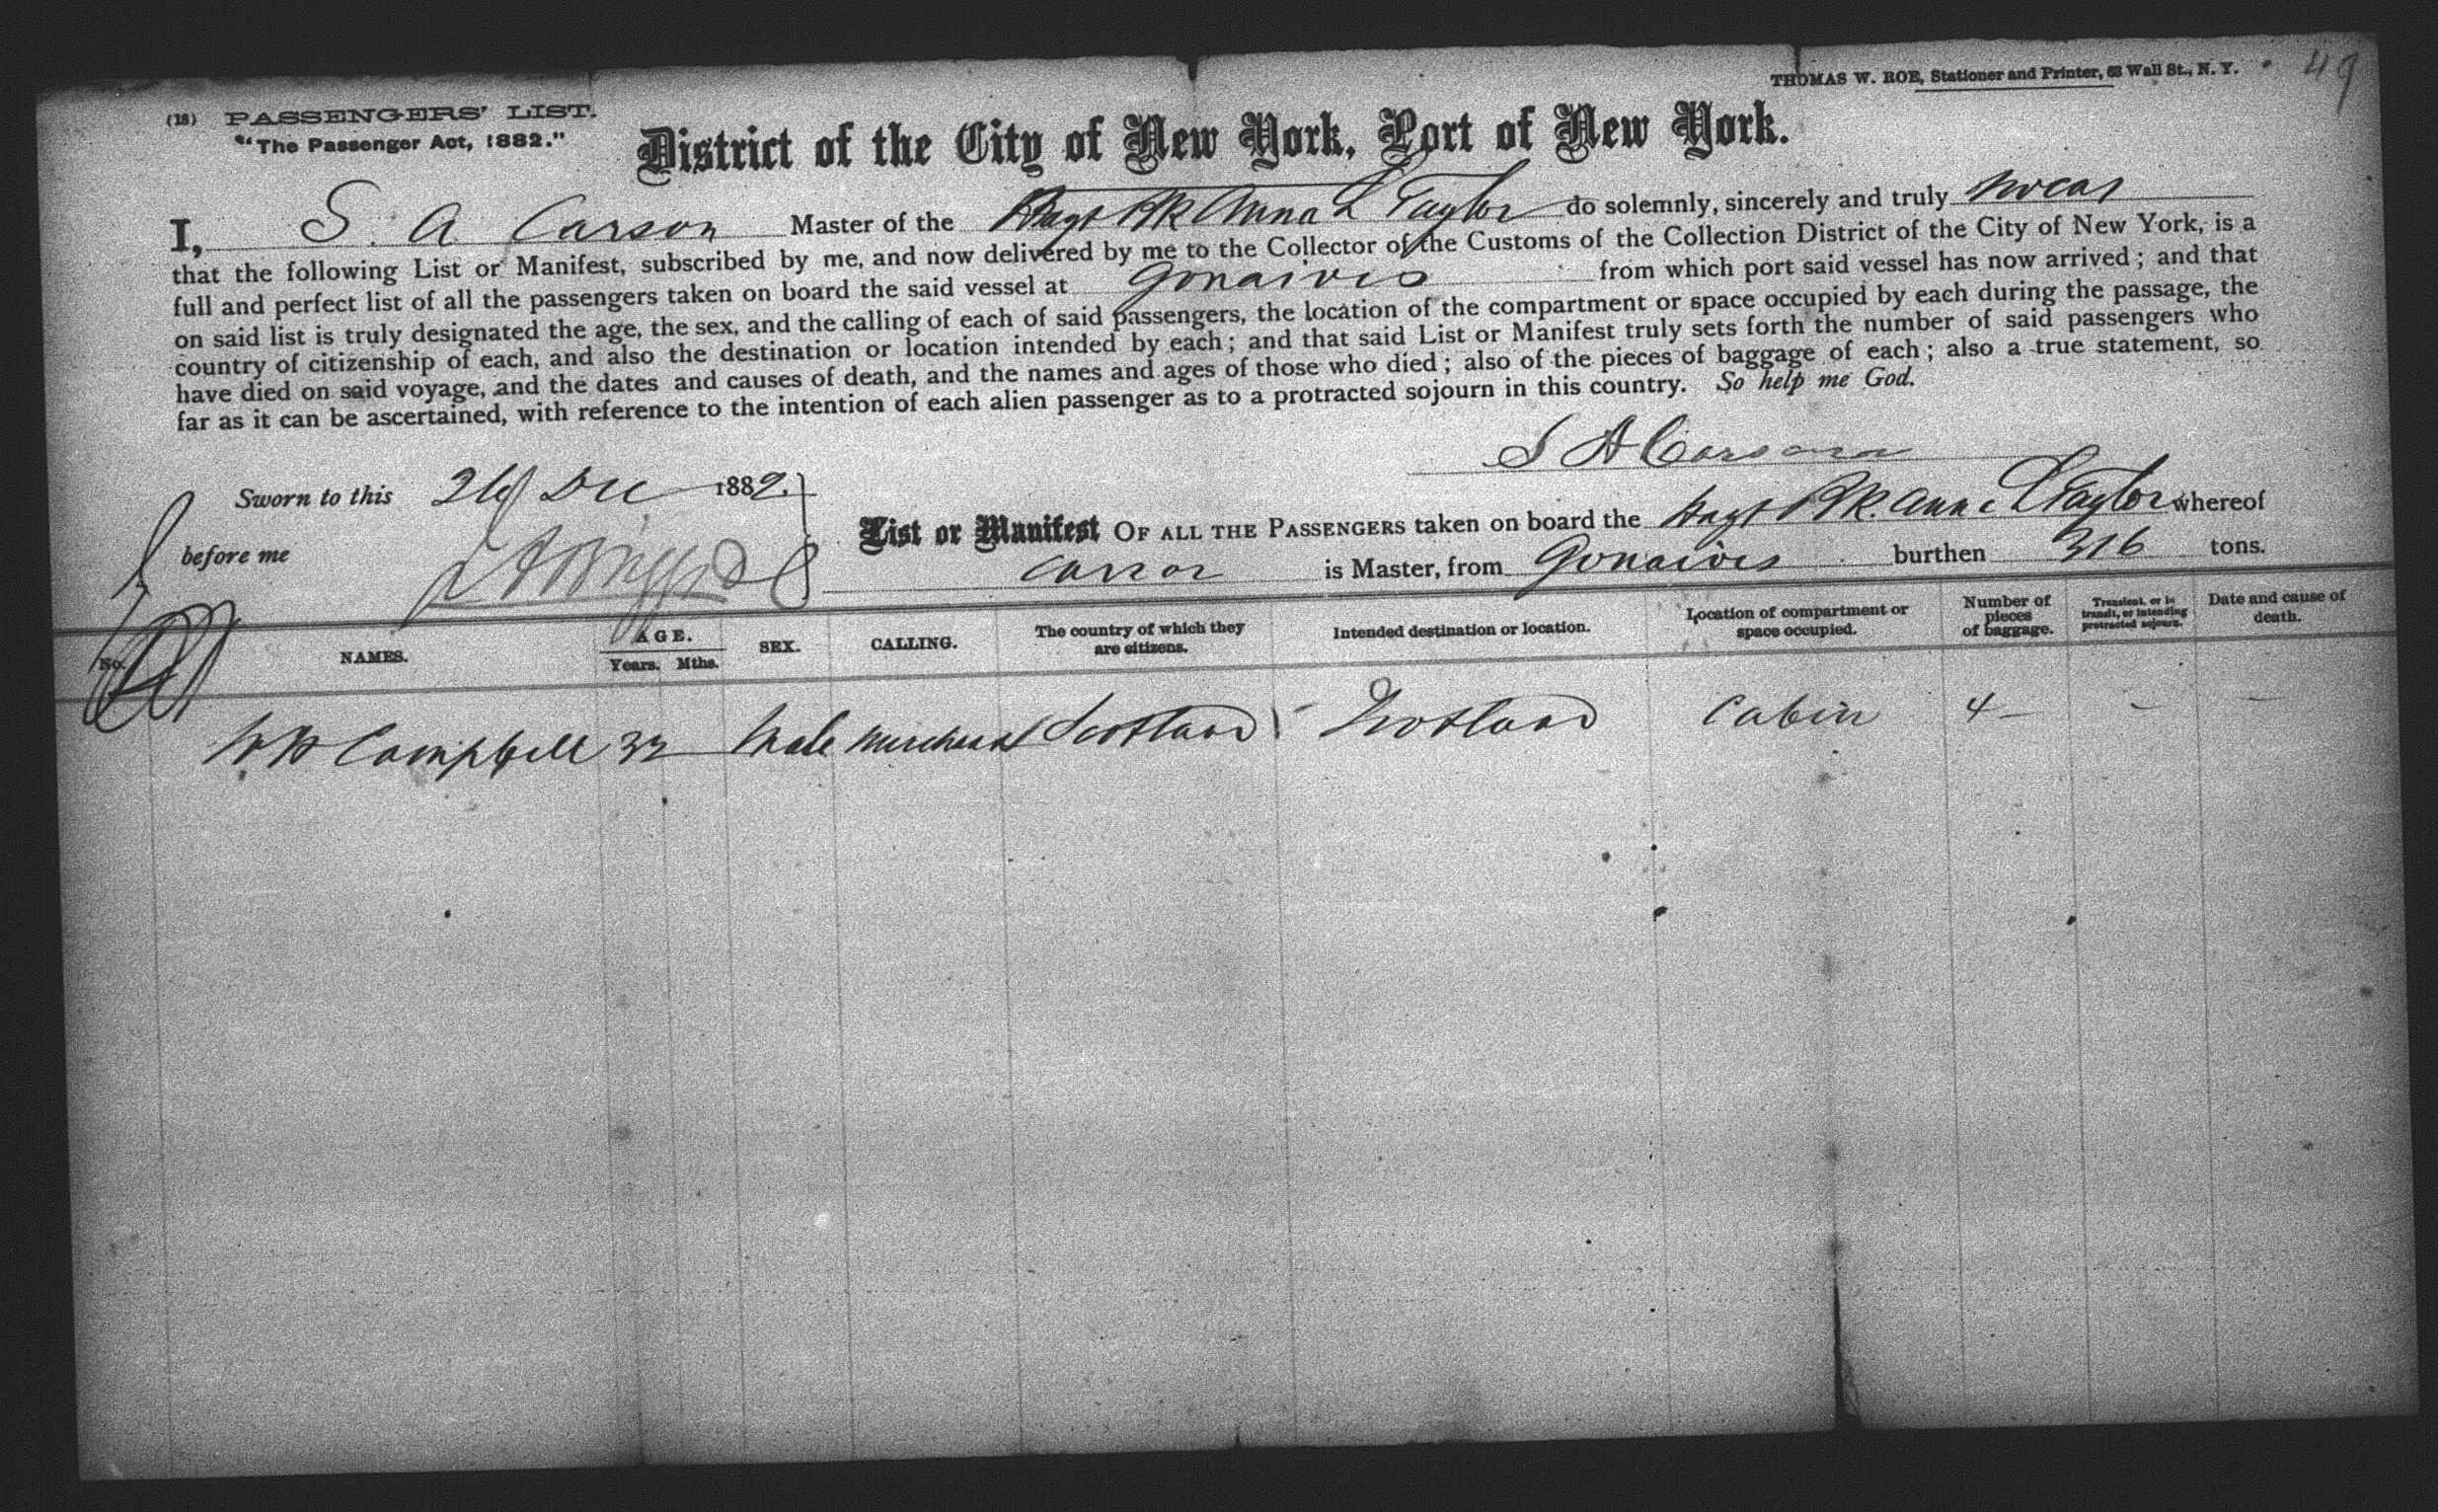 49
THOMAS W. ROE, Stationer and Printer, 68 Wall St., N. Y.
(18) PASSENGERS' LIST.
"The Passenger Act, 1882."
District of the City of New York, Port of New York.
I, S. A. Carson Master of the Bk Anna L Taylor do solemnly, sincerely and truly swear
that the following List or Manifest, subscribed by me, and now delivered by me to the Collector of the Customs of the Collection District of the City of New York, is a
full and perfect list of all the passengers taken on board the said vessel at Gonaives from which port said vessel has now arrived; and that
on said list is truly designated the age, the sex, and the calling of each of said passengers, the location of the compartment or space occupied by each during the passage, the
country of citizenship of each, and also the destination or location intended by each; and that said List or Manifest truly sets forth the number of said passengers who
have died on said voyage, and the dates and causes of death, and the names and ages of those who died; also of the pieces of baggage of each; also a true statement, so
far as it can be ascertained, with reference to the intention of each alien passenger as to a protracted sojourn in this country. So help me God.
S A Carson
Sworn to this 26 Dec 1882.
before me
List or Manifest OF ALL THE PASSENGERS taken on board the Bk. Anna L Taylor whereof
Carson is Master, from Gonaives burthen 316 tons.
No. NAMES. AGE. Years. Mths. SEX. CALLING. The country of which they are citizens. Intended destination or location. Location of compartment or space occupied. Number of pieces of baggage. Transient, or in transit, or intending protracted sojourn. Date and cause of death.
Campbell 32 Male Merchant Scotland Scotland Cabin 4 - - -